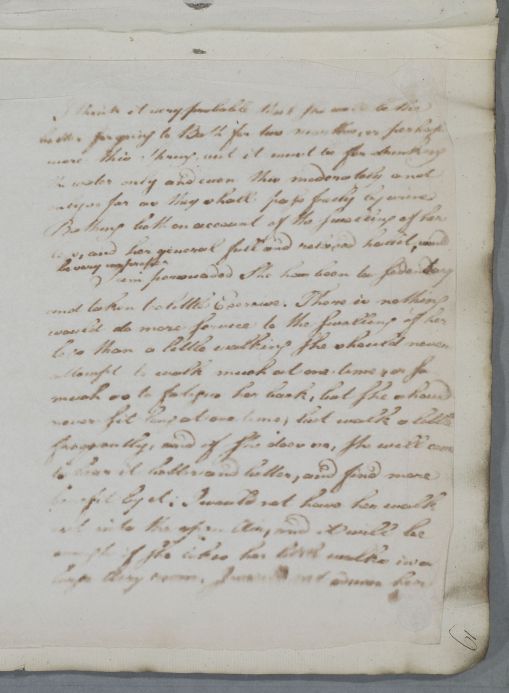 I think it very probable that she will be the
better for going to Bath for two months, or perhaps
more this Spring, but it must be for drinking
the water only and even this moderately and
only so far as they shall pass freely by urine
Bathing both on account of the swelling of her
legs, and her general full and relaxed habit, would
be very improper
I am persuaded She has been too Sedentary
and taken too little Exercise. There is nothing
would do more service to the swelling of her
legs than a little walking She should never
attempt to walk much at one time, or so
much as to fatigue her back, but She should
never sit long at one time, but walk a little
frequently, and if She does so, She will come
to bear it better and better, and find more
benefit by it; I would not have her walk
out into the open Air, and it will be
enough if She takes her little walks in a
large airy room. I would not advise her
61